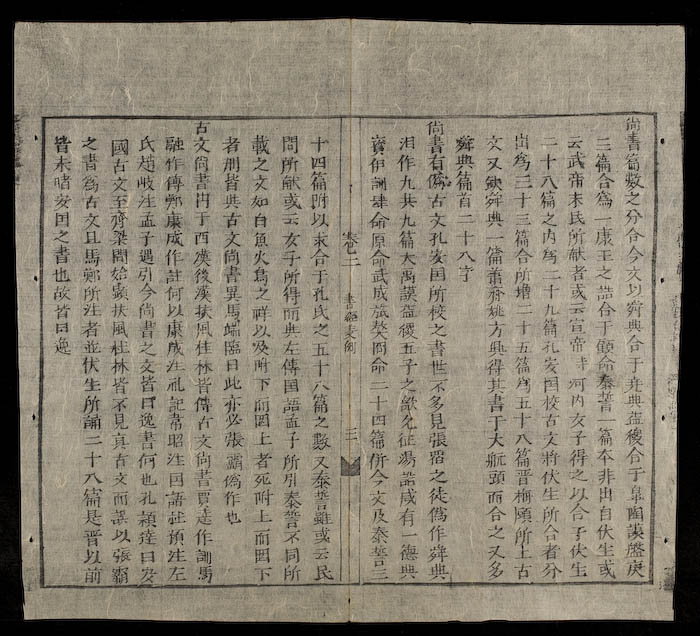 尚書篇數之分合今文以舜典合于堯典益稷合于皋陶謨盤庚
三篇合為一康王之誥合于顧命泰誓一篇本非出自伏生或
云武帝末民所献者或云宣帝時河內女子得之以合于伏生
二十八篇之內為二十九篇孔安国校古文將伏生所合者分
出為三十三篇合所增二十五篇為五十八篇晉梅頤所上古
文又缺舜典一篇蕭齊姚方興得其書于大航頭而合之又多
舜典篇首二十八字
尚書有偽古文孔安国所校之書世不多見張霸之徒偽作舜典
汨作九共九篇大禹謨益稷五子之歌允征湯誥咸有一德典
寳伊訓肆命原命武成旅獒冏命二十四篇併今文及泰誓三
卷二 書經 三
十四篇附以求合于孔氏之五十八篇之數又泰誓雖或云民
間所献或云女子所得而與左傳国語孟子所引泰誓不同所
載之文如白魚火烏之祥以及附下而罔上者死附上而罔下
者刑皆與古文尚書異馬端臨曰此亦必張霸偽作也
古文尚書于西漢後漢扶風杜林皆傳古文尚書賈逵作訓馬
融作傳鄭康成作註何以康成注礼記韋昭注国語杜預注左
氏趙岐注孟子遇引今尚書之文皆曰逸書何也孔穎達曰安
國古文至齊梁間始顕扶風杜林皆不見真古文而誤以張霸
之書為古文且馬鄭所注者並伏生所誦二十八篇是晋以前
皆未睹安国之書也故皆曰逸